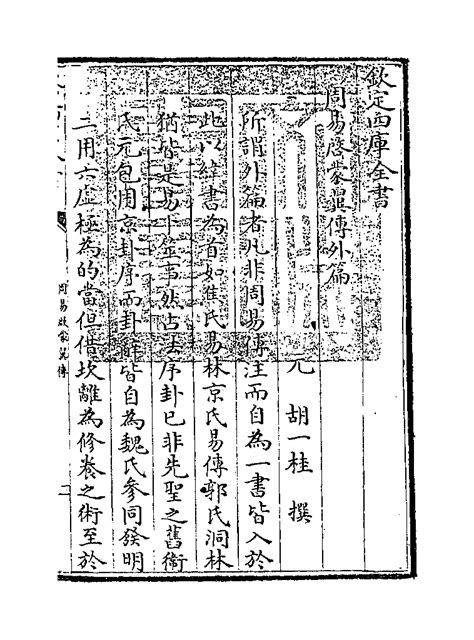 欽定四庫全書
周易啓蒙翼傳外篇
元　胡一桂　撰
所謂外篇者凡非周易傳注而自為一書皆入於
此以緯書為首如焦氏易林京氏易傳郭氏洞林
猶皆是易卜筮事然占法序卦已非先聖之舊衛
氏元包用京卦序而卦辭皆自為魏氏參同發明
二用六虛極為的當但借坎離為修養之術至於
周易啟蒙翼傳